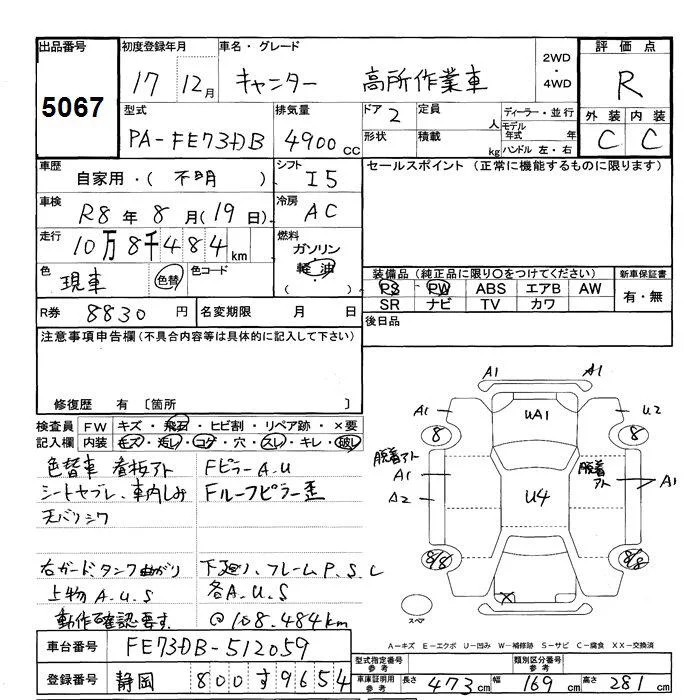 出品番号
5067
初度登録年月
17 12月
車名・グレード
キャンター 高所作業車
2WD
・
4WD
評価点
R
外装 内装
C C
型式
PA-FE73DB
排気量
4900cc
ドア 2
形状
定員 人
積載 kg
ディーラー・並行
モデル年式 年
ハンドル 左・右
車歴
自家用・( 不明 )
シフト
I5
セールスポイント (正常に機能するものに限ります)
車検
R8年 8月(19日)
冷房
AC
走行
10万8千484km
燃料
ガソリン
軽油
( )
色
現車
色替
色コード
装備品(純正品に限り○をつけてください)
PS PW ABS エアB AW
SR ナビ TV カワ
新車保証書
有・無
R券 8830円
名変期限 月 日
後日品
注意事項申告欄(不具合内容等は具体的に記入して下さい)
修復歴 有 〔箇所 〕
検査員記入欄
FW キズ・飛石・ヒビ割・リペア跡・×要
内装 キズ・汚レ・コゲ・穴・スレ・キレ・破レ
色替車 看板アト
シートヤブレ、車内しみ
天バリシワ
右ガード、タンク曲がり
上物A.U.S
動作確認要す
FピラーA.U
Fルーフピラー歪
下廻り、フレームP.S.C
各A.U.S
@108.484km
A1 A1
A1 UA1 U2
8 8
脱着アト
A1
A2
U4
脱着アト
A1
8/8 8/8
X
スペア
A-キズ E-エクボ U-凹み W-補修跡 S-サビ C-腐食 XX-交換済
車台番号
FE73DB-512059
登録番号
静岡 800す9654
型式指定番号 参考
類別区分番号 参考
車庫証明用 参考
長さ 473cm 幅 169cm 高さ 281cm